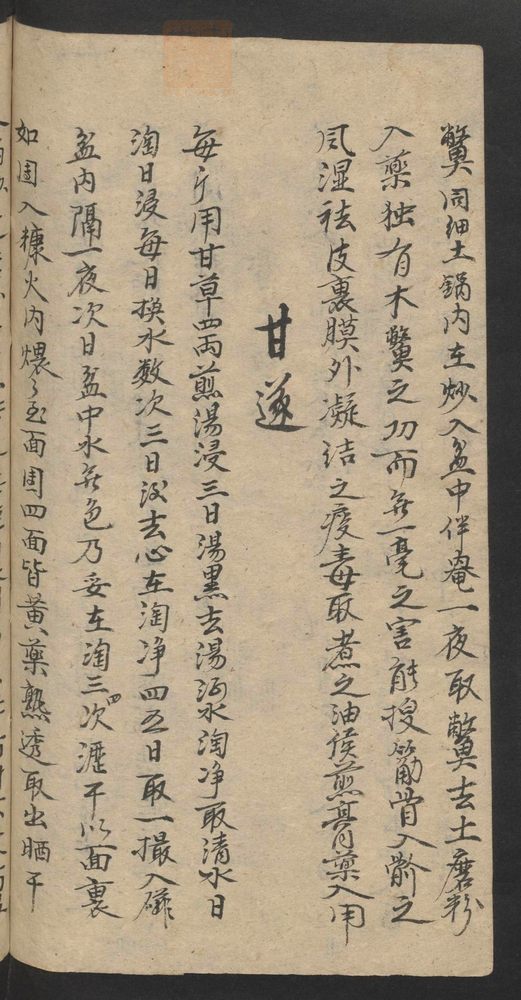 鱉同细土鍋内在炒入盆中伴奄一夜取鱉去土磨粉
入藥独有木鱉之功而無一毫之害能搜筋骨入骱之
风湿祛皮裏膜外凝结之痰毒取煮之油候煎膏藥入用
甘遂
每斤用甘草四两煎湯浸三日湯黑去湯河水淘净取清水日
淘日浸每日换水数次三日後去心在淘净四五日取一撮入磁
盆内隔一夜次日盆中水無色乃妥在淘三四次瀝干以面裹
如圆入糠火内煨々至面周四面皆黄藥熟透取出晒干